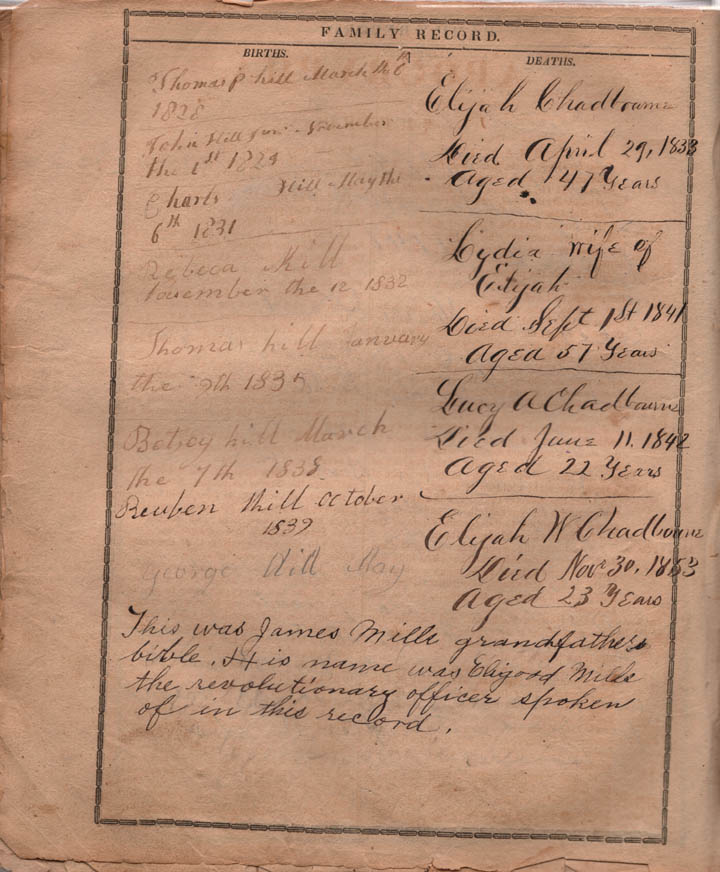 FAMILY RECORD.
BIRTHS.
Thomas P hill March the 6th
1828
John Hill Junr November
the 1st 1829
Charls Hill May the
6th 1831
Rebeca Hill
November the 12 1832
Thomas hill January
the 9th 1835
Betsey hill March
the 7th 1838
Reuben Hill October
1839
George Hill May
DEATHS.
Elijah Chadbourne
Died April 29, 1833
Aged 47 Years
Lydia wife of
Elijah
Died Sept 1st 1841
Aged 57 Years
Lucy A Chadbourne
Died June 11. 1842
Aged 22 Years
Elijah W Chadbourne
Died Nov 30, 1853
Aged 23 Years
This was James Mills grandfathers
bible. His name was Eligood Mills
the revolutionary officer spoken
of in this record.